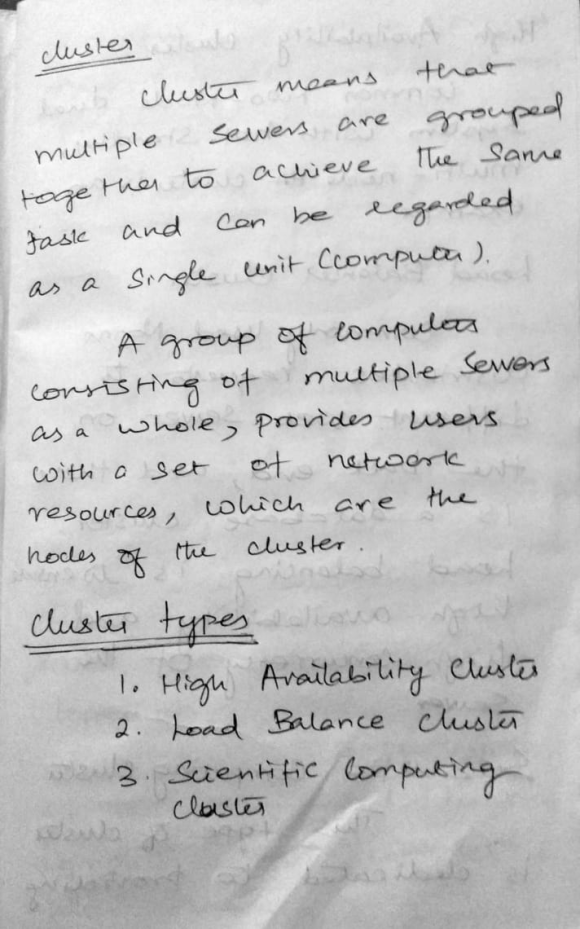 cluster
cluster means that
multiple servers are grouped
together to achieve the same
task and can be regarded
as a single unit (computer).
A group of computers
consisting of multiple servers
as a whole, provides users
with a set of network
resources, which are the
nodes of the cluster.
cluster types
1. High Availability Cluster
2. Load Balance Cluster
3. Scientific Computing
cluster